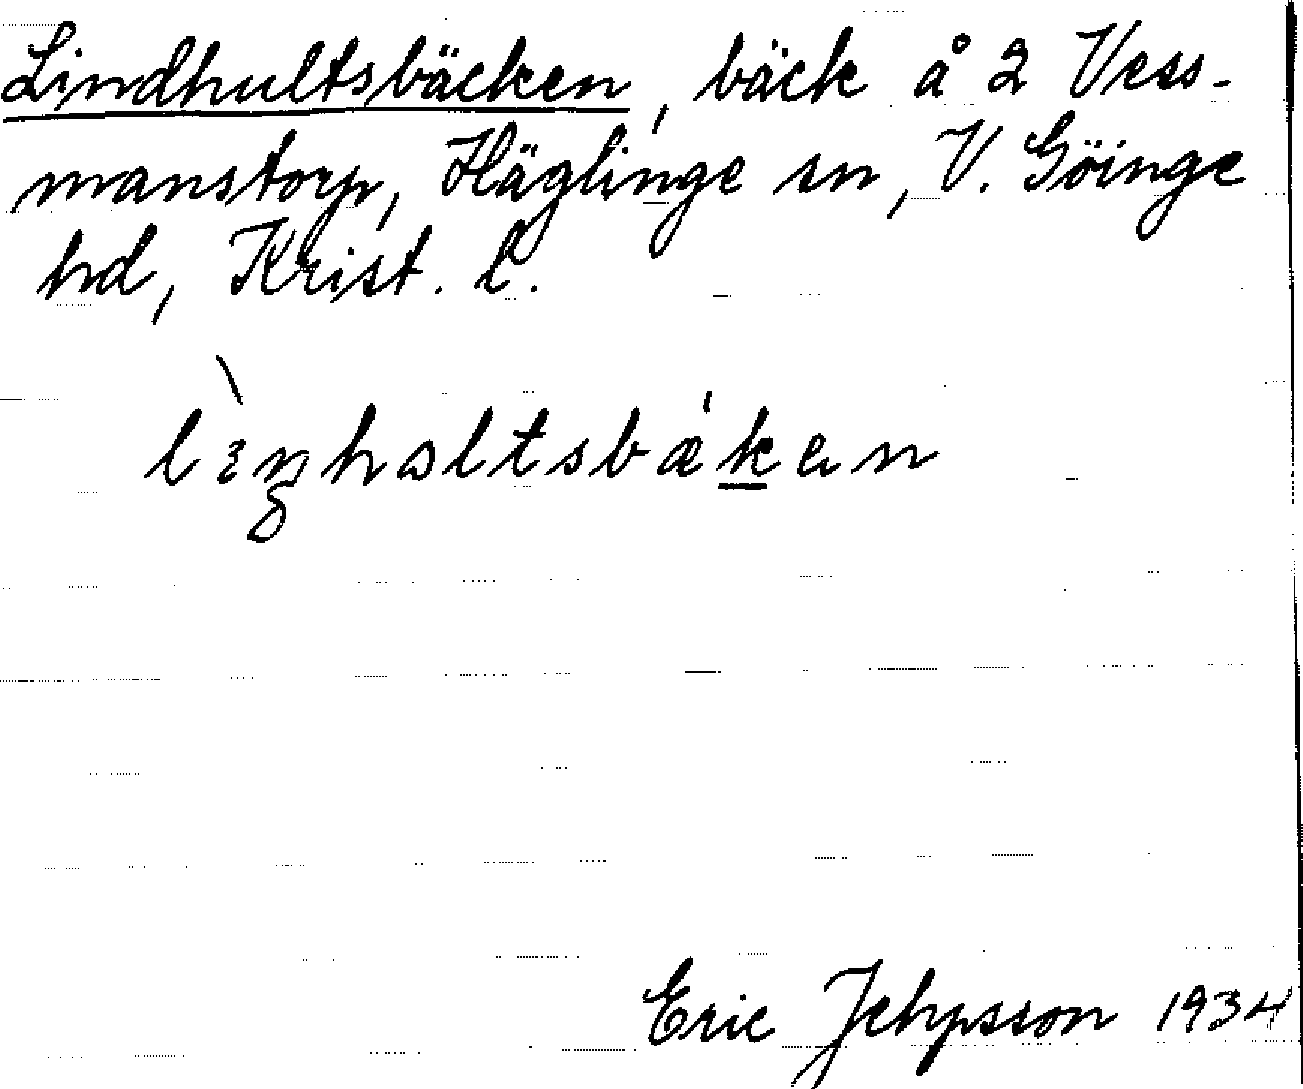 Lindhultsbäcken, bäck å 2 Vess-
manstorp, Häglinge sn, V. Göinge
hd, Krist. l.
Eric Jehpsson 1934